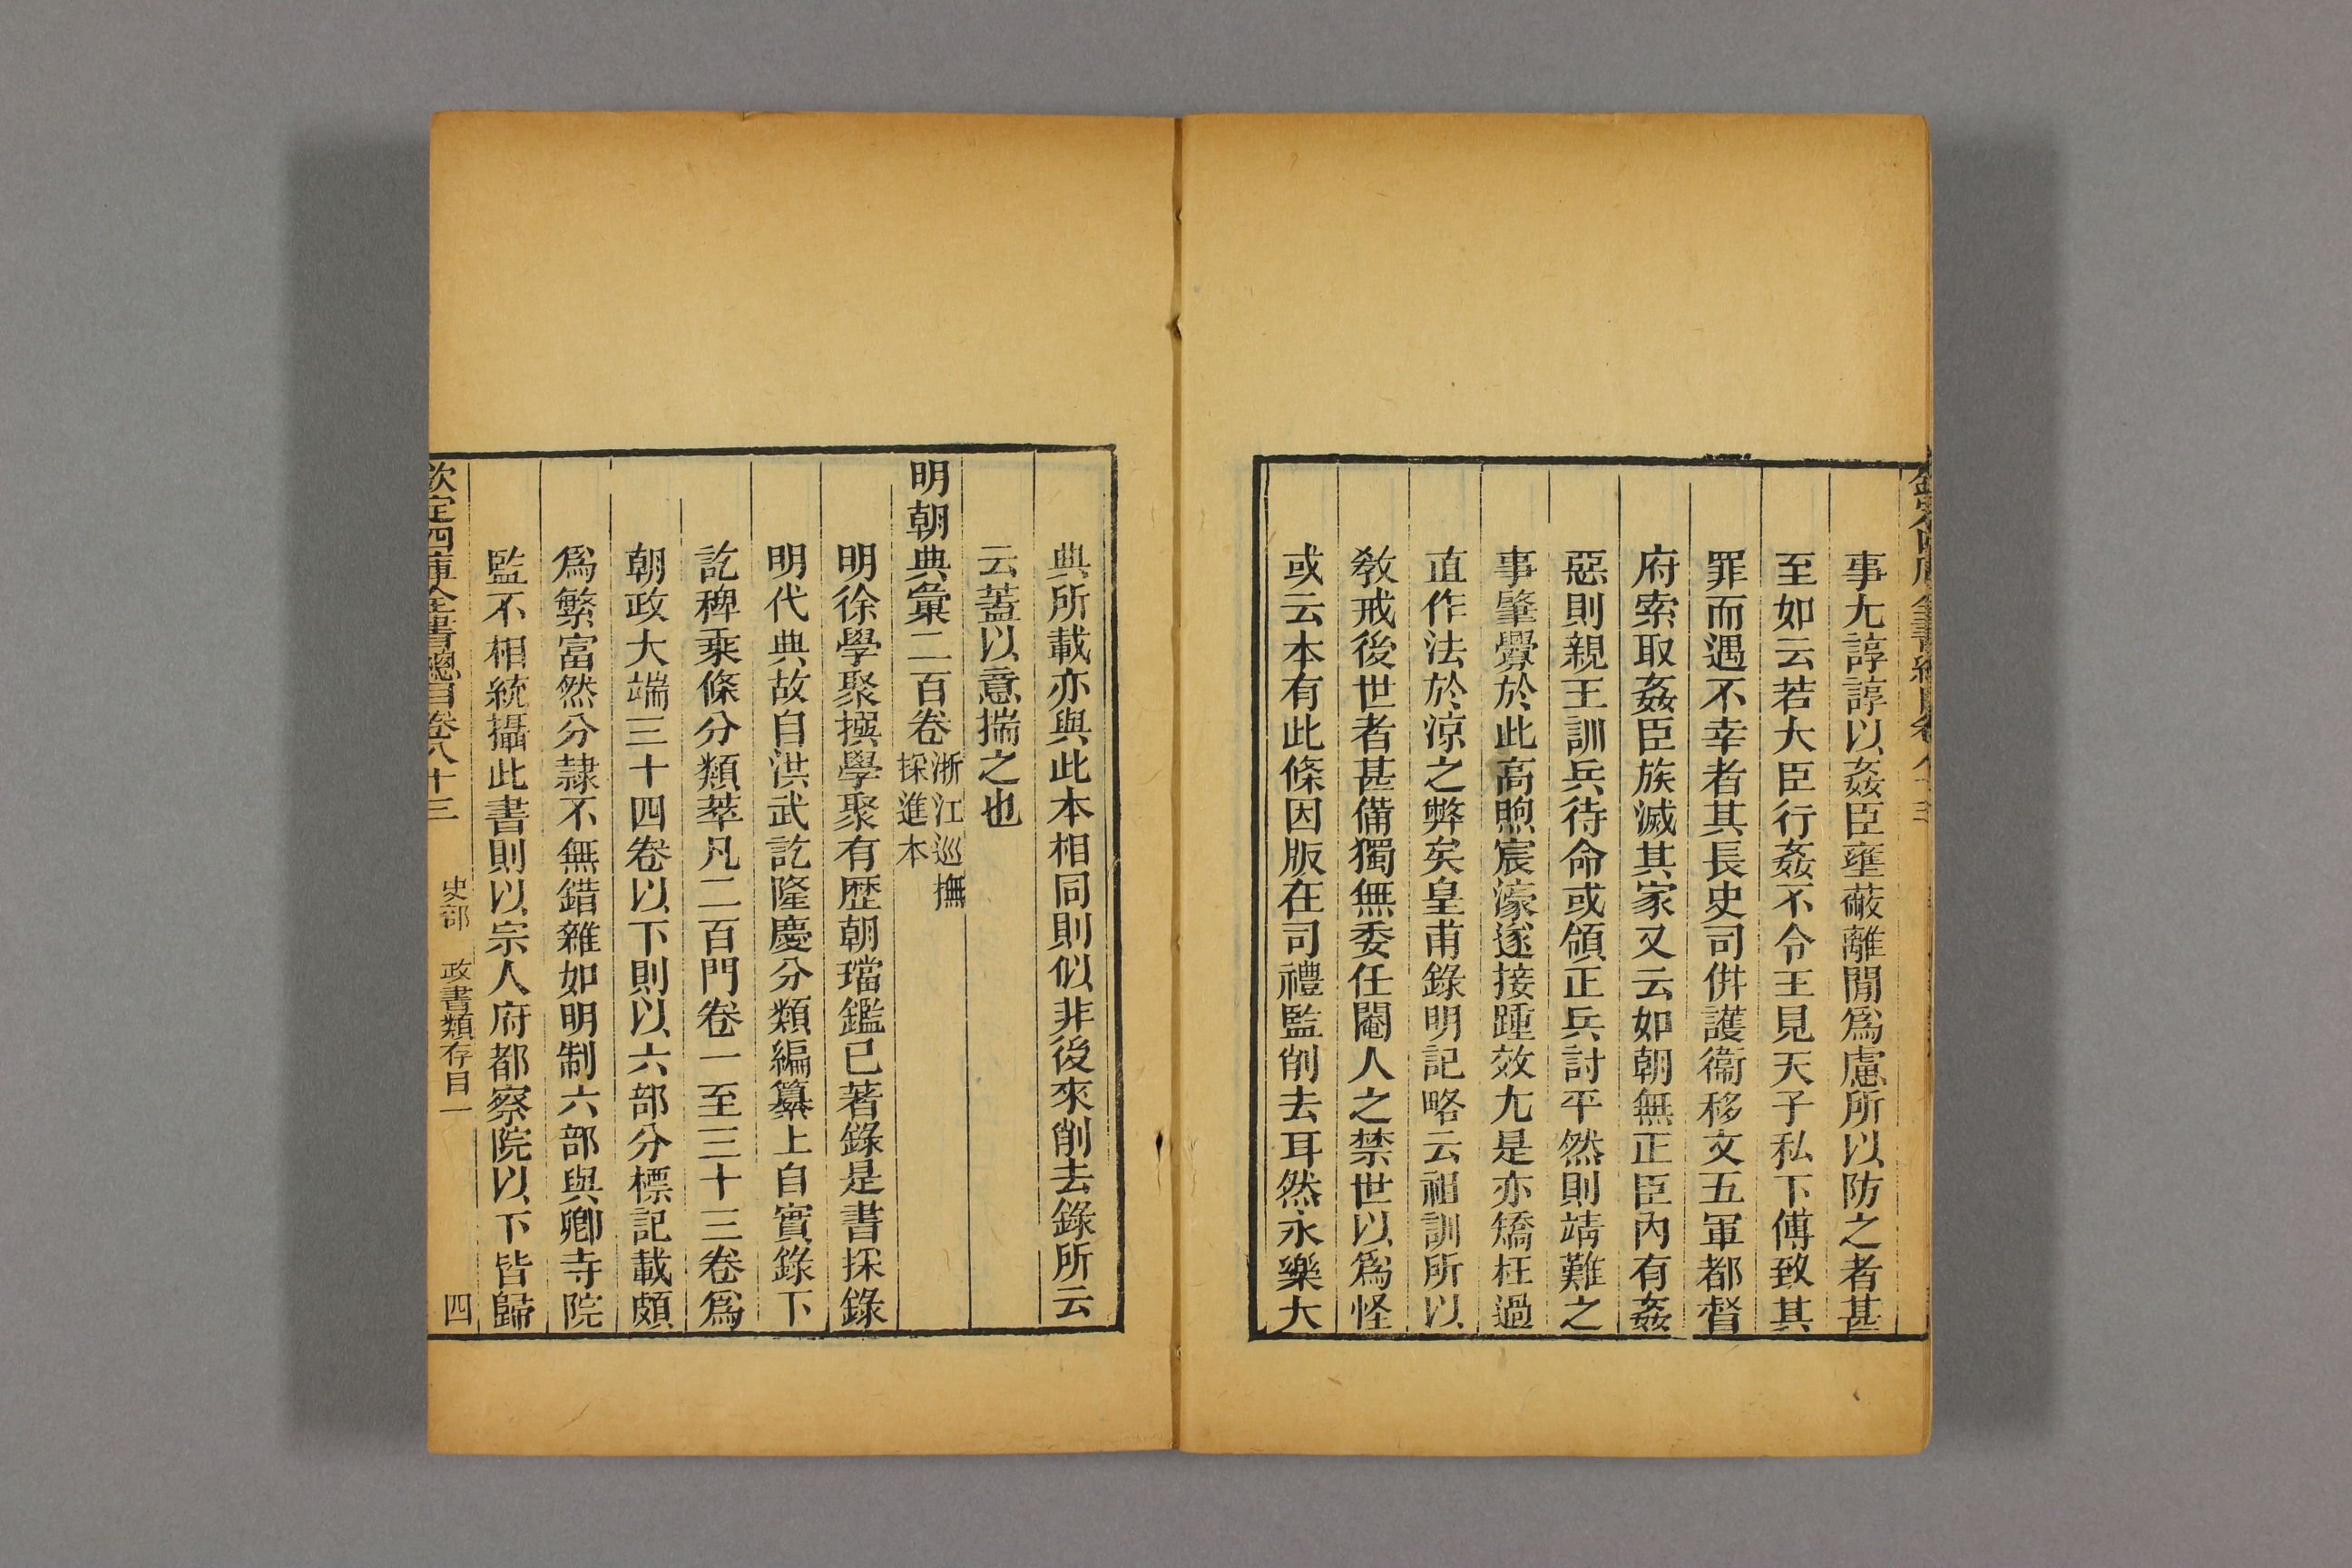 事尤諄諄以姦臣壅蔽離閒爲慮所以防之者甚
至如云若大臣行姦不令王見天子私下傅致其
罪而遇不幸者其長史司倂護衞移文五軍都督
府索取姦臣族滅其家又云如朝無正臣內有姦
惡則親王訓兵待命或領正兵討平然則靖難之
事肇釁於此高煦宸濠遂接踵效尤是亦矯枉過
直作法於涼之弊矣皇甫錄明記略云祖訓所以
敎戒後世者甚備獨無委任閹人之禁世以爲怪
或云本有此條因版在司禮監削去耳然永樂大
典所載亦與此本相同則似非後來削去錄所云
云蓋以意揣之也
明朝典彙二百卷浙江巡撫
採進本
明徐學聚撰學聚有歷朝璫鑑已著錄是書採錄
明代典故自洪武訖隆慶分類編纂上自實錄下
訖稗乘條分類萃凡二百門卷一至三十三卷爲
朝政大端三十四卷以下則以六部分標記載頗
爲繁富然分隸不無錯雜如明制六部與卿寺院
監不相統攝此書則以宗人府都察院以下皆歸
欽定四庫全書總目卷八十三 史部 政書類存目一 四